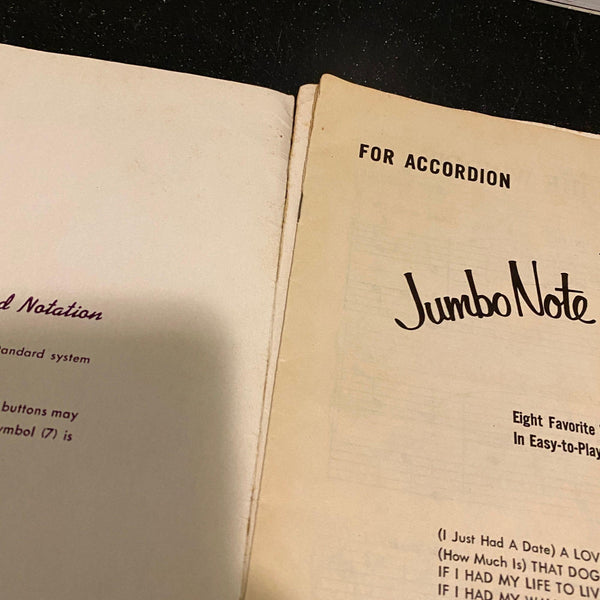 d Notation
andard system
buttons may
ymbol (7) is
FOR ACCORDION
Jumbo Note
Eight Favorite
In Easy-to-Play
(I Just Had A Date) A LOV
(How Much Is) THAT DOG
IF I HAD MY LIFE TO LIV
IF I HAD MY